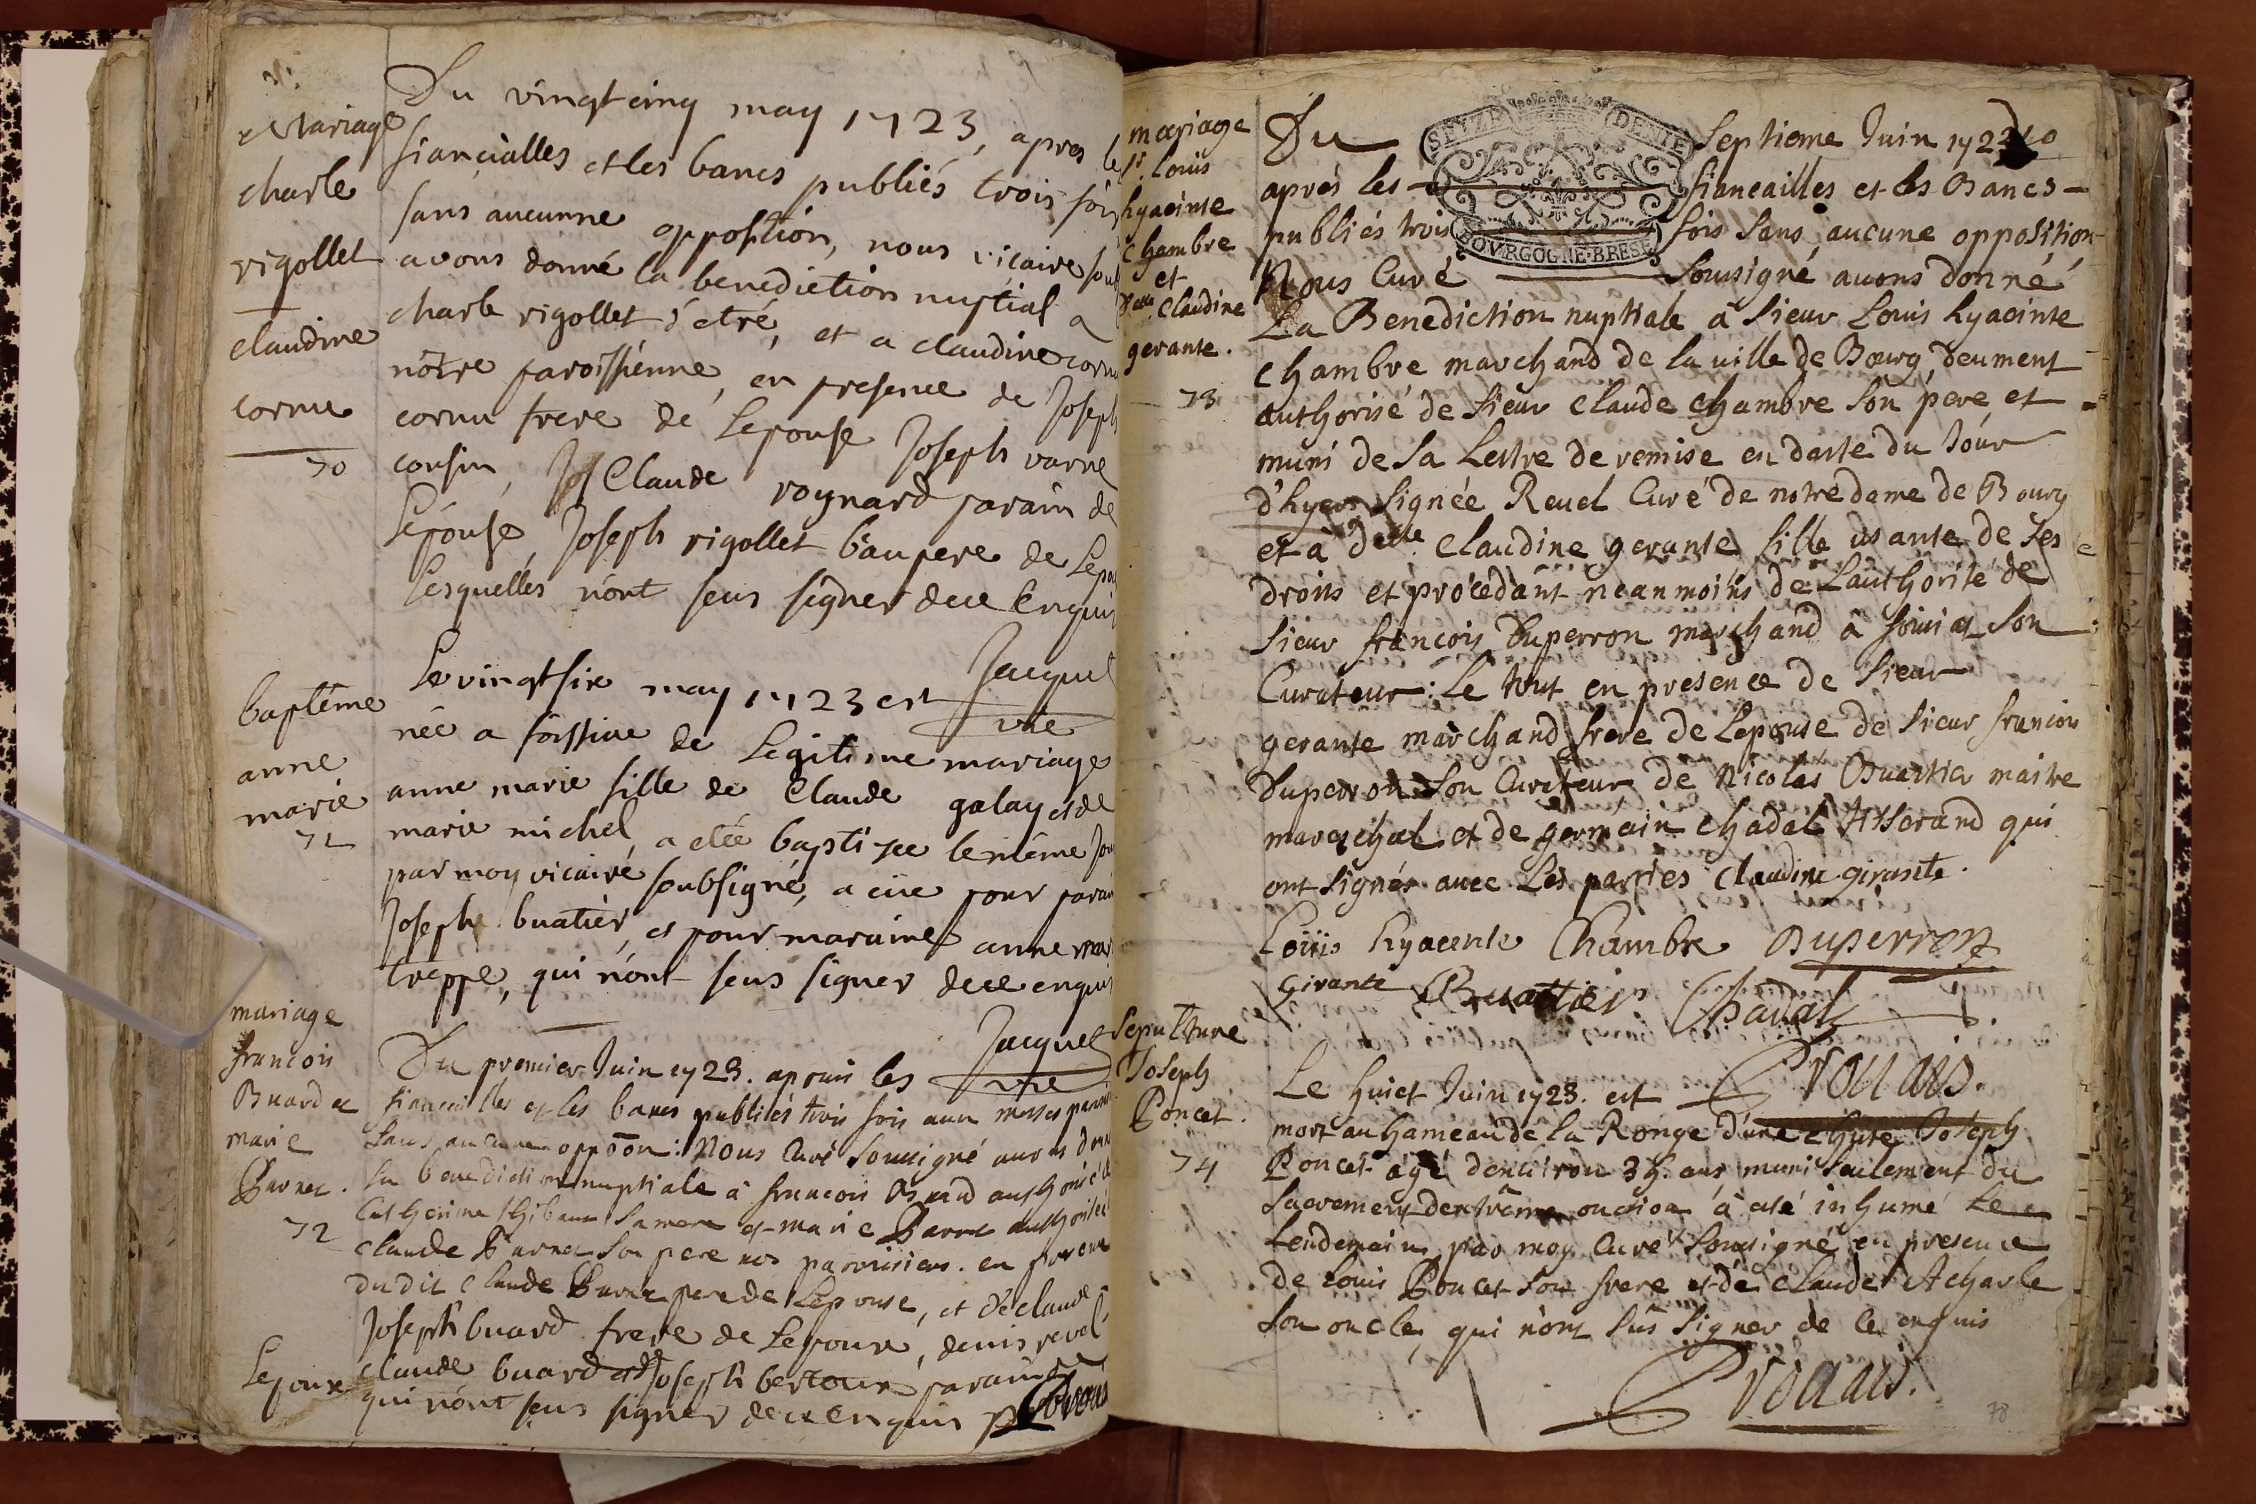 Mariage
charle
rigollet
claudine
cornu
70
Du vingtcinq may 1723, apres les
fianciàlles et les bancs publiés trois fois
sans aucunne oppostion, nous vicaire sous
avons donné la benediction nuptial a
charle rigollet d'etré, et a claudine cornu
nôtre paroissiénne, en presence de Joseph
cornu frere de Lepouse Joseph varne
cousin, Claude roynard parain de
Lépouse, Joseph rigollet bàupere de Lepou
Lesquellés n'ont seus signer de ce enquis
Jacquet
vre
baptême
anne
marie
71
Le vingtsix may 1723 est
née a foissiae de Legitime mariage
anne marie fille de Claude galay et de
marie michel, a etée baptisee le même Jou
par moy vicairé soubsigné, a eüe pour parain
Joseph buatier, et pour maraine anne mar
treppe, qui n'ont seus signer de ce enquis
Jacquet
vre
mariage
francois
Buard et
marie
Barnet.
72
Du premier Juin 1723. aprais les
fiancailles et les bancs publiés trois fois aux messes paroi
sans aucune oppoon: Nous Curé soussigné auons donn
La benediction nuptiale à francois Buard authorisé de
Catherine thibaut sa mere et marie Barnet authorisée
claude Barnet son pere nos paroissiens. en presence
dudit claude Barnet pere de Lepouse, et de claude
Joseph buard frere de Lepoux, denis revel
Lepoux
claude buard et de Joseph bertoux parain
qui n'ont seus signer de ce enquis
mariage
Sr. Louis
hyacinte
Chambre
et
Delle Claudine
gerante.
73
SEIZE DENIE
BOVRGOGNE·BRESE
Du Septieme Juin 1723
apres les fiancailles et les Bancs
publiés trois fois sans aucune opposition
Nous Curé soussigné auons donné
La Benediction nuptiale à Sieur Louis hyacinte
Chambre marchand de la uille de Bourg, deument
authorisé de Sieur Claude Chambre son pere, et
muni de sa Lettre de remise en datte du Jour
d'hyer signée Reuel Curé de notre dame de Bourg
et à delle Claudine gerante fille usante de ses
droits et procédant neanmoins de L'authorité de
Sieur francois Duperron marchand à son
Curateur: Le tout en presence de Sieur
gerante marchand frere de Lepouse de Sieur francois
Duperron son Curateur de Nicolas Buattier maitre
mareschal et de germain Chadal tisserand qui
ont signés auec Les parties Claudine girante.
Loüis hyacente Chambre Duperron
Girante Buattier Chadal
Prouais.
Sepulture
Joseph
Poncet.
74
Le huict Juin 1723. est
mort au hameau de la Ronge d'une chute Joseph
Poncet agé denuiron 35. ans muni seulement du
Sacrement dextrême onction à eté inhumé Le
Lendemain par moy Curé soussigné en presence
de Louis Poncet son frere et de Claude Acharle
son oncle, qui n'ont sûs signer de ce enquis
Prouais.
78